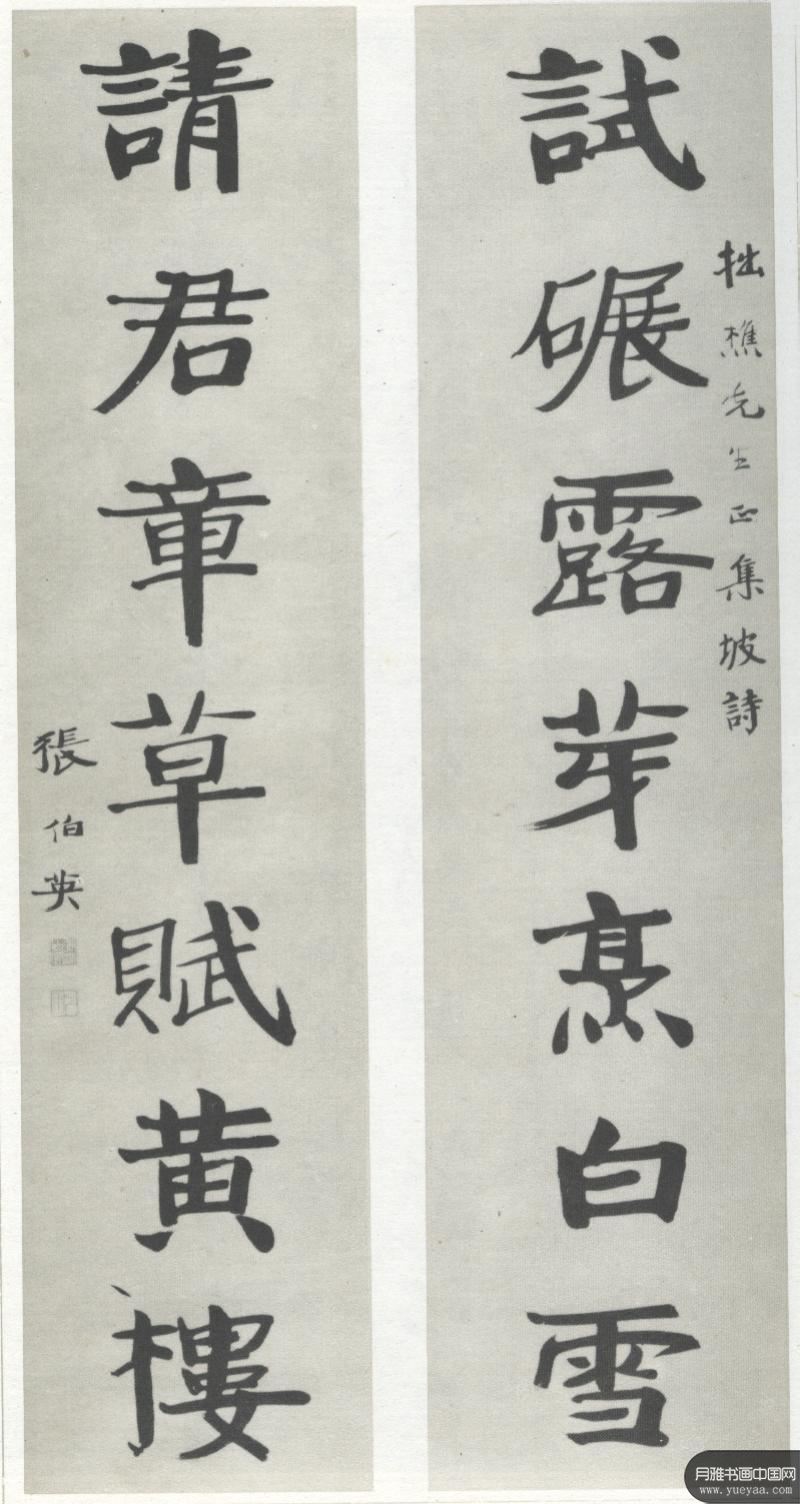 拙樵先生正集坡詩
試碾露芽烹白雪
請君章草賦黃樓
張伯英
月雅书画中国网
www.yueyaa.com